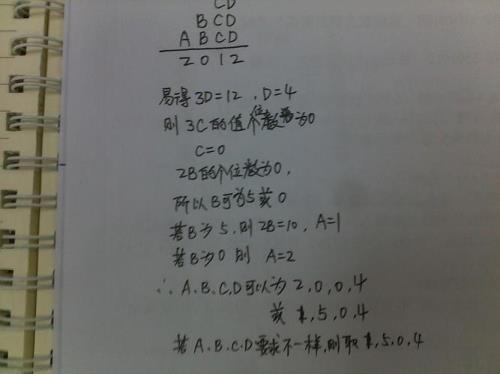 CD
B CD
A B C D
2 0 1 2
易得 3D=12 , D=4
则 3C的值个位数为0
C=0
2B的个位数为0,
所以B可为5或0
若B为5,则2B=10, A=1
若B为0则 A=2
∴ A、B、C、D可以为 2,0,0,4
或 1,5,0,4
若A、B、C、D要求不一样,则取 1,5,0,4